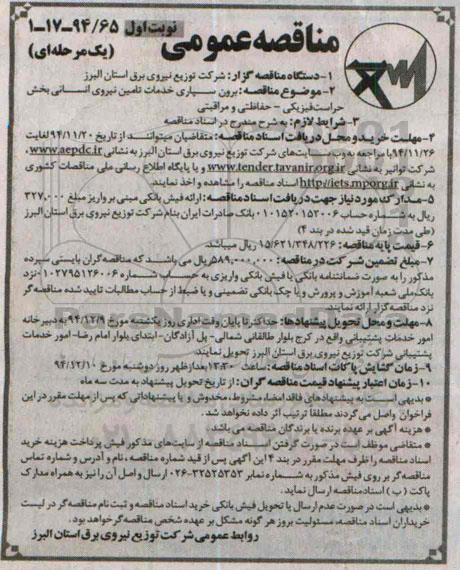 نوبت اول ۹۴/۶۵-۱۷-۱
مناقصه عمومی (یک مرحله‌ای)
۱-دستگاه مناقصه گزار: شرکت توزیع نیروی برق استان البرز
۲-موضوع مناقصه: برون سپاری خدمات تامین نیروی انسانی بخش
حراست فیزیکی - حفاظتی و مراقبتی
۳- شرایط لازم: به شرح مندرج در اسناد مناقصه
۴-مهلت خرید و محل دریافت اسناد مناقصه: متقاضیان میتوانند از تاریخ ۹۴/۱۱/۲۰ لغایت
۹۴/۱۱/۲۶ با مراجعه به وب سایت‌های شرکت توزیع نیروی برق استان البرز به نشانی www.aepdc.ir
شرکت توانیر به نشانی www.tender.tavanir.org.ir و یا پایگاه اطلاع رسانی ملی مناقصات کشوری
به نشانی http://iets.mporg.ir اسناد مناقصه را مشاهده و اخذ نمایند.
۵-مدارک مورد نیاز جهت دریافت اسناد مناقصه: ارائه فیش بانکی مبنی بر واریز مبلغ ۳۲۷,۰۰۰
ریال به شماره حساب ۰۱۰۱۵۲۰۱۵۲۰۰۶ بانک صادرات ایران بنام شرکت توزیع نیروی برق استان البرز
(طی مدت زمان قید شده در بند ۴)
۶-قیمت پایه مناقصه: ۱۵/۶۲۱/۳۴۸/۲۲۶ ریال میباشد.
۷-مبلغ تضمین شرکت در مناقصه: ۵۸۹,۰۰۰,۰۰۰ ریال می باشد که مناقصه گران بایستی سپرده
مذکور را به صورت ضمانتنامه بانکی یا فیش بانکی واریزی به حساب شماره ۰۱۰۲۷۹۵۱۲۶۰۰۶ نزد
بانک ملی شعبه آموزش و پرورش و یا چک بانکی تضمینی و یا ضبط از حساب مطالبات تایید شده مناقصه گر
نزد مناقصه گزار ارائه نمایند.
۸-مهلت و محل تحویل پیشنهادها: حداکثر تا پایان وقت اداری روز یکشنبه مورخ ۹۴/۱۲/۹ به دبیرخانه
امور خدمات پشتیبانی واقع در کرج بلوار طالقانی شمالی- پل آزادگان- ابتدای بلوار امام رضا- امور خدمات
پشتیبانی شرکت توزیع نیروی برق استان البرز تحویل نمایند.
۹-زمان گشایش پاکات اسناد مناقصه: ساعت ۱۳:۳۰ بعدازظهر روز دوشنبه مورخ ۹۴/۱۲/۱۰
۱۰-زمان اعتبار پیشنهاد قیمت مناقصه گران: از تاریخ تحویل پیشنهاد به مدت سه ماه
* بدیهی است به پیشنهادهای فاقد امضاء، مشروط، مخدوش و یا پیشنهاداتی که پس از مهلت مقرر در این
فراخوان واصل می گردند مطلقا ترتیب اثر داده نخواهد شد.
* هزینه آگهی بر عهده برنده یا برندگان مناقصه می باشد.
* متقاضی موظف است در صورت گرفتن اسناد مناقصه از سایت‌های مذکور فیش پرداخت هزینه خرید
اسناد مناقصه را ظرف مهلت مقرر در بند ۴ این آگهی پس از قید شماره مناقصه، نام و آدرس و شماره تماس
مناقصه گر بر روی فیش مذکور به شماره نمابر ۳۲۵۲۵۳۵۳-۰۲۶ ارسال و اصل آن را نیز به همراه مدارک
پاکت (ب) اسناد مناقصه ارسال نماید.
* بدیهی است در صورت عدم ارسال یا تحویل فیش بانکی خرید اسناد مناقصه و ثبت نام مناقصه گر در لیست
خریداران اسناد مناقصه، مسئولیت بروز هر گونه مشکل بر عهده شخص مناقصه گر خواهد بود.
روابط عمومی شرکت توزیع نیروی برق استان البرز